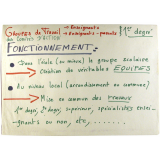 GROUPES de TRAVAIL → Enseignants 1er degré
ou COMITES D'ACTION → Enseignants - parents
FONCTIONNEMENT :
• Dans l'école (au mieux) le groupe scolaire
→ Création de véritables EQUIPES
• Au niveau local (arrondissement ou commune)
→ Mise en commun des TRAVAUX
1er degré, 2e degré, supérieur, spécialistes enseignants ou non, etc,